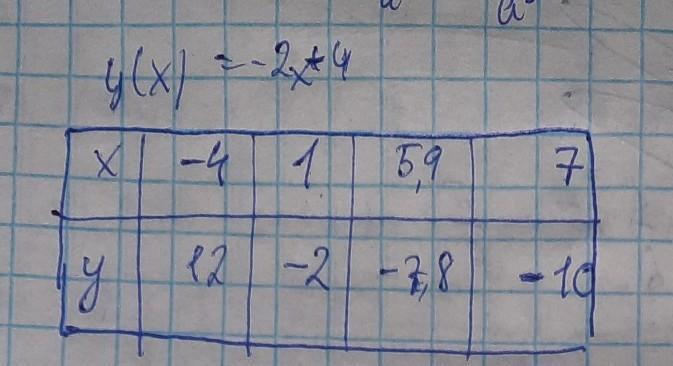 y(x) = -2x+4
x -4 1 5,9 7
y 12 -2 -7,8 -10